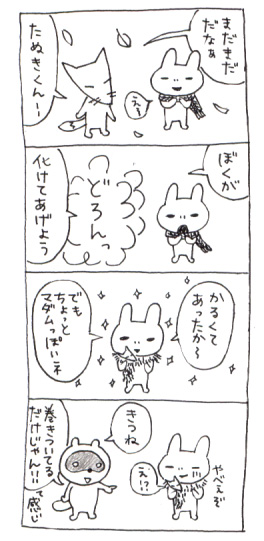 まだまだ
だなぁ
えー
たぬきくんー
ぼくが
どろんっ
化けてあげよう
かるくて
あったか〜
でも
ちょっと
マダムっぽいネ
やべぇぞ
え!?
きつね
巻きついてる
だけじゃん!!
て感じ